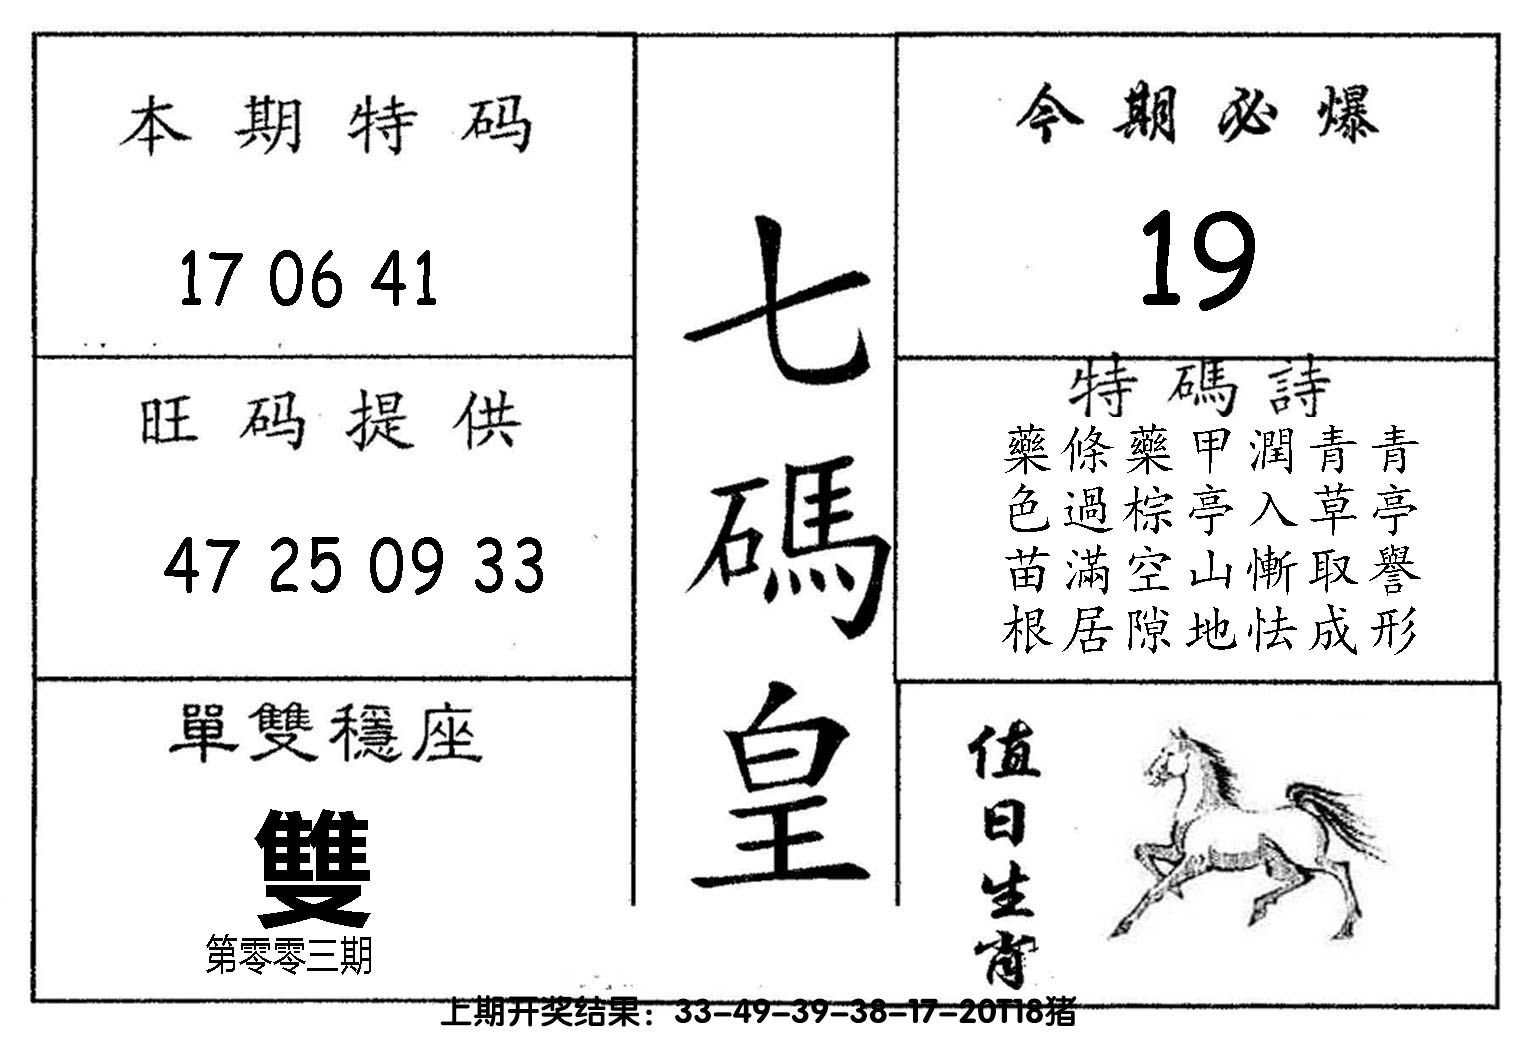 本期特码
17 06 41
旺码提供
47 25 09 33
單雙穩座
雙
第零零三期
七碼皇
今期必爆
19
特碼詩
藥條藥甲潤青青
色過棕亭入草亭
苗滿空山慚取譽
根居隙地怯成形
值日生肖
上期开奖结果：33-49-39-38-17-20T18猪